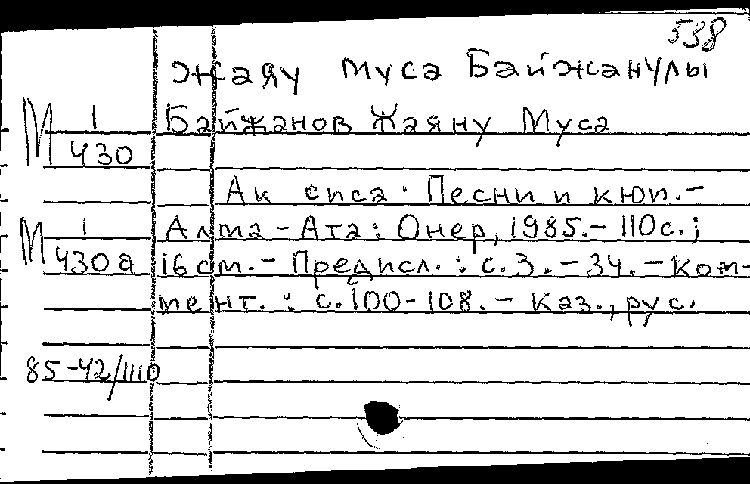 538
Жаяу Муса Байжанулы
М 1 Байжанов Жаяну Муса
430
Ак сиса. Песни и кюи.-
М 1 Алма-Ата: Онер, 1985.- 110с.;
430а 16 см.- Предисл.: с.3.-34.- Ком-
мент.: с.100-108.- Каз., рус.
85-42/1110